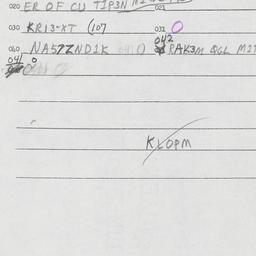 020 ER OF CU TIP3N
030 KR13-XT (107 031 O
040 NA5ZZND1K 042 RAK3M QGL M1T
041
KLOPM